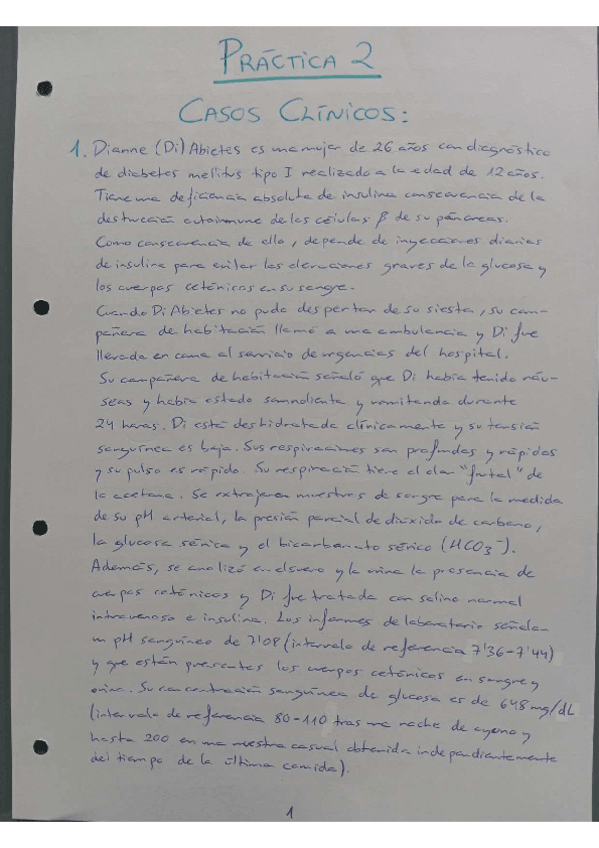 PRÁCTICA 2
CASOS CLÍNICOS:
1. Dianne (Di) Abietes es una mujer de 26 años con diagnóstico
de diabetes mellitus tipo I realizado a la edad de 12 años.
Tiene una deficiencia absoluta de insulina consecuencia de la
destrucción autoinmune de las células β de su páncreas.
Como consecuencia de ello, depende de inyecciones diarias
de insulina para evitar las elevaciones graves de la glucosa y
los cuerpos cetónicos en su sangre.
Cuando Di Abietes no pudo despertar de su siesta, su com-
pañera de habitación llamó a una ambulancia y Di fue
llevada en coma al servicio de urgencias del hospital.
Su compañera de habitación señaló que Di había tenido náu-
seas y había estado somnolienta y vomitando durante
24 horas. Di está deshidratada clínicamente y su tensión
sanguínea es baja. Sus respiraciones son profundas y rápidas
y su pulso es rápido. Su respiración tiene el olor "frutal" de
la acetona. Se extrajeron muestras de sangre para la medida
de su pH arterial, la presión parcial de dióxido de carbono,
la glucosa sérica y el bicarbonato sérico (HCO3⁻).
Además, se analizó en el suero y la orina la presencia de
cuerpos cetónicos y Di fue tratada con salino normal
intravenoso e insulina. Los informes de laboratorio señalan
un pH sanguíneo de 7'08 (intervalo de referencia 7'36-7'44)
y que están presentes los cuerpos cetónicos en sangre y
orina. Su concentración sanguínea de glucosa es de 648 mg/dL
(intervalo de referencia 80-110 tras una noche de ayuno y
hasta 200 en una muestra casual obtenida independientemente
del tiempo de la última comida).
1